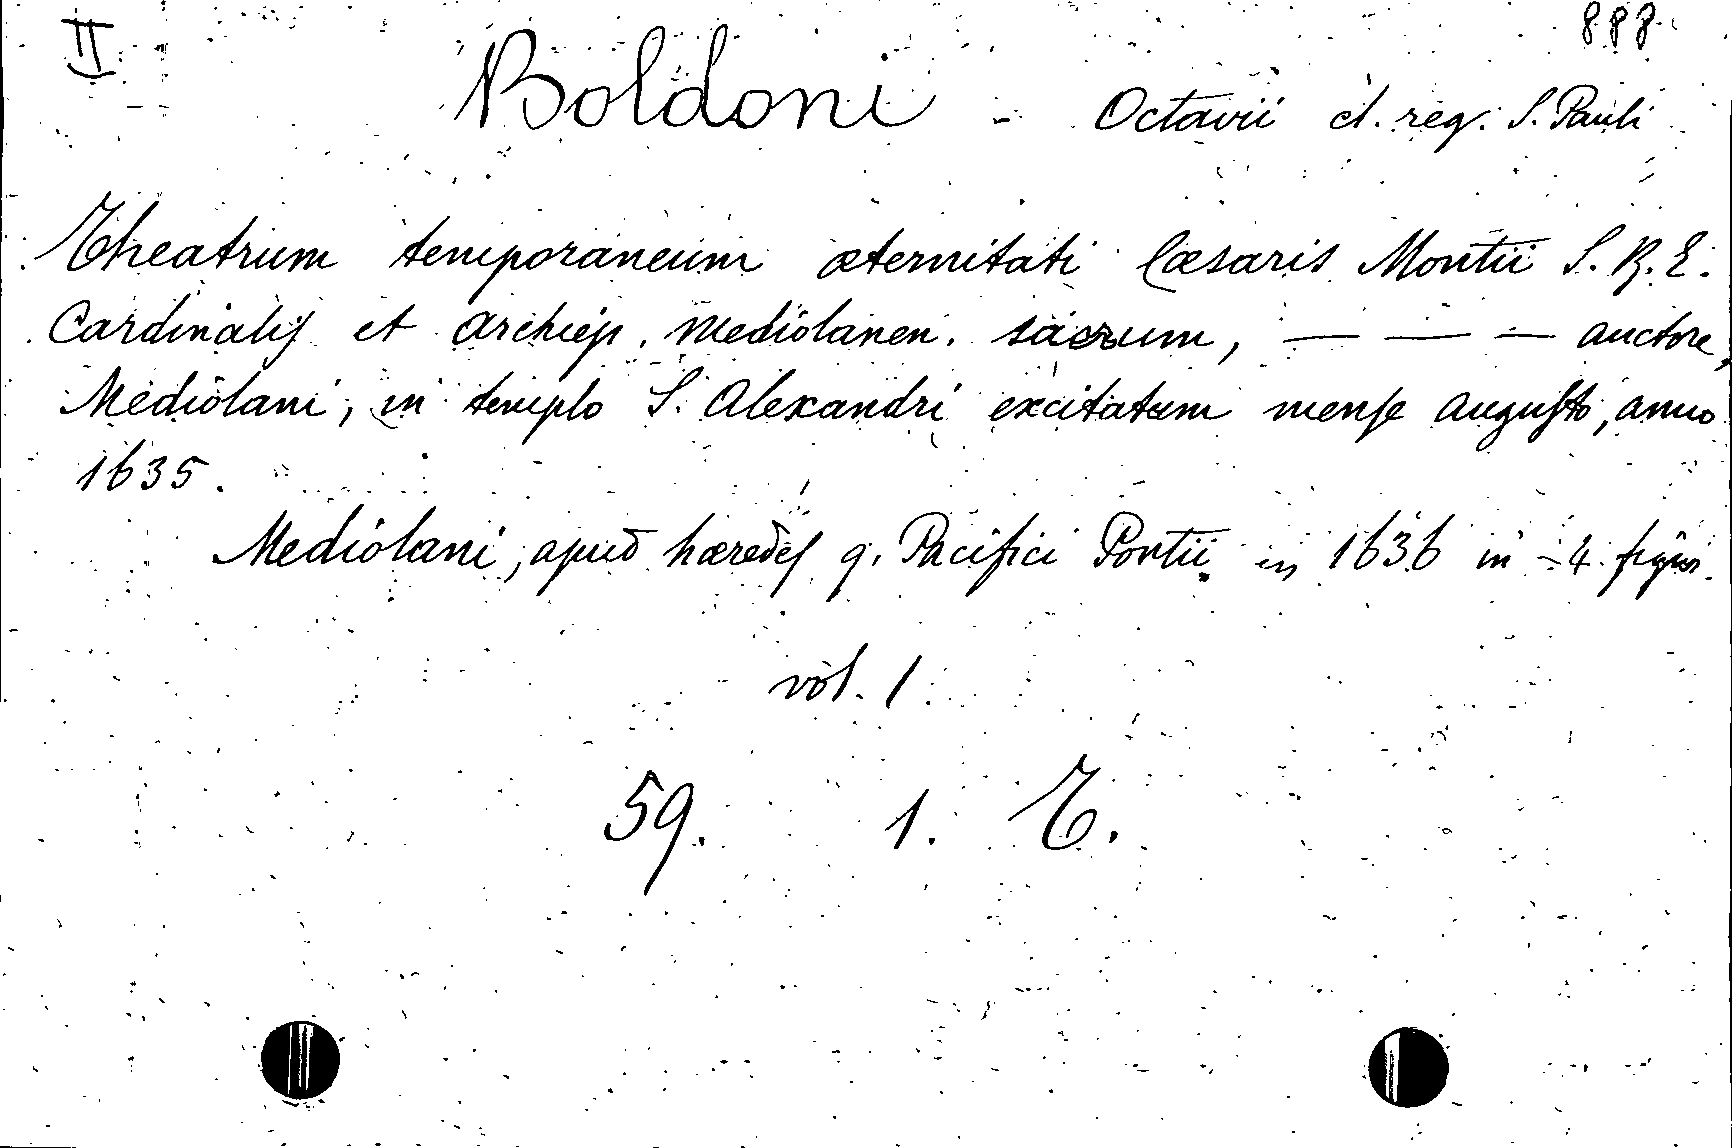 II 888
Boldoni - Octavii cl. reg. S. Pauli
Theatrum temporaneum æternitati Cæsaris Montii S. R. E.
Cardinalis et archiep. Mediolanen. sacrum, — — — auctore,
Mediolani, in templo S. Alexandri excitatum mense augusto, anno
1635.
Mediolani, apud hæredes q. Pacifici Pontii in 1636 in -4. figur.
vol. 1
59. 1. T.